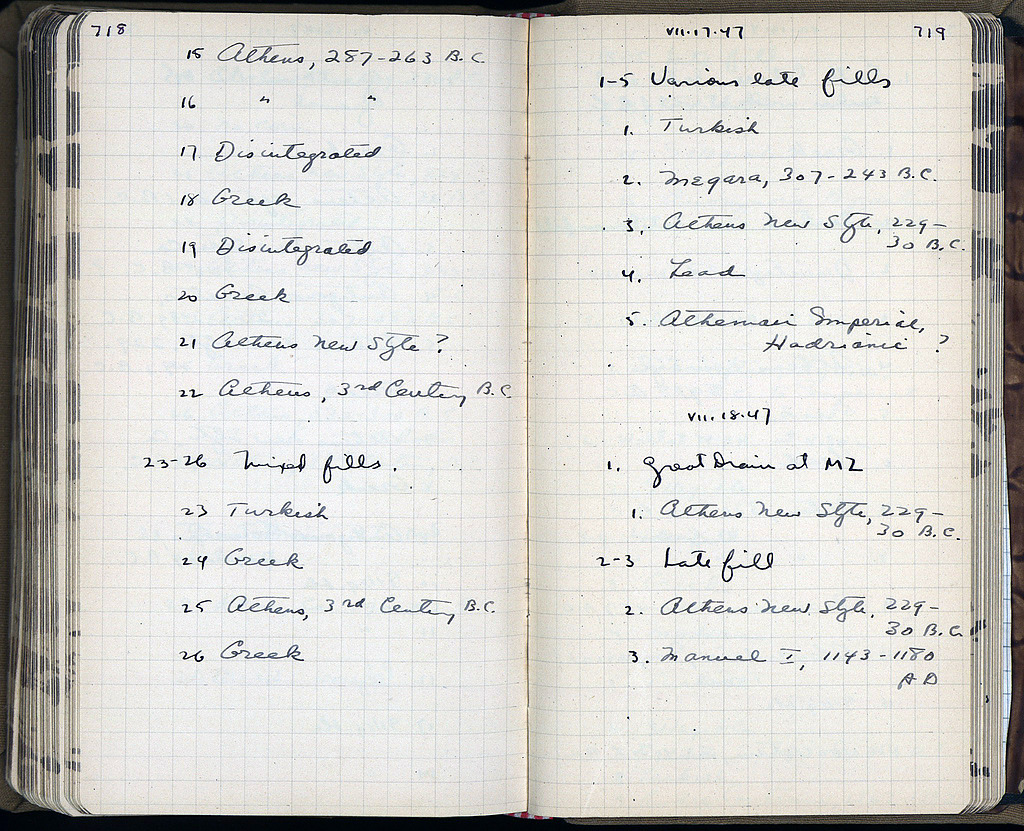 718
15 Athens, 287-263 B.C.
16 " "
17 Disintegrated
18 Greek
19 Disintegrated
20 Greek
21 Athens New Style ?
22 Athens, 3rd Century B.C.
23-26 Mixed fills.
23 Turkish
24 Greek
25 Athens, 3rd Century B.C.
26 Greek
VII.17.47 719
1-5 Various late fills
1. Turkish
2. Megara, 307-243 B.C.
3. Athens New Style, 229-
30 B.C.
4. Lead
5. Athenian Imperial,
Hadrianic ?
VII.18.47
1. Great Drain at MZ
1. Athens New Style, 229-
30 B.C.
2-3 Late fill
2. Athens New Style, 229-
30 B.C.
3. Manuel I, 1143-1180
AD